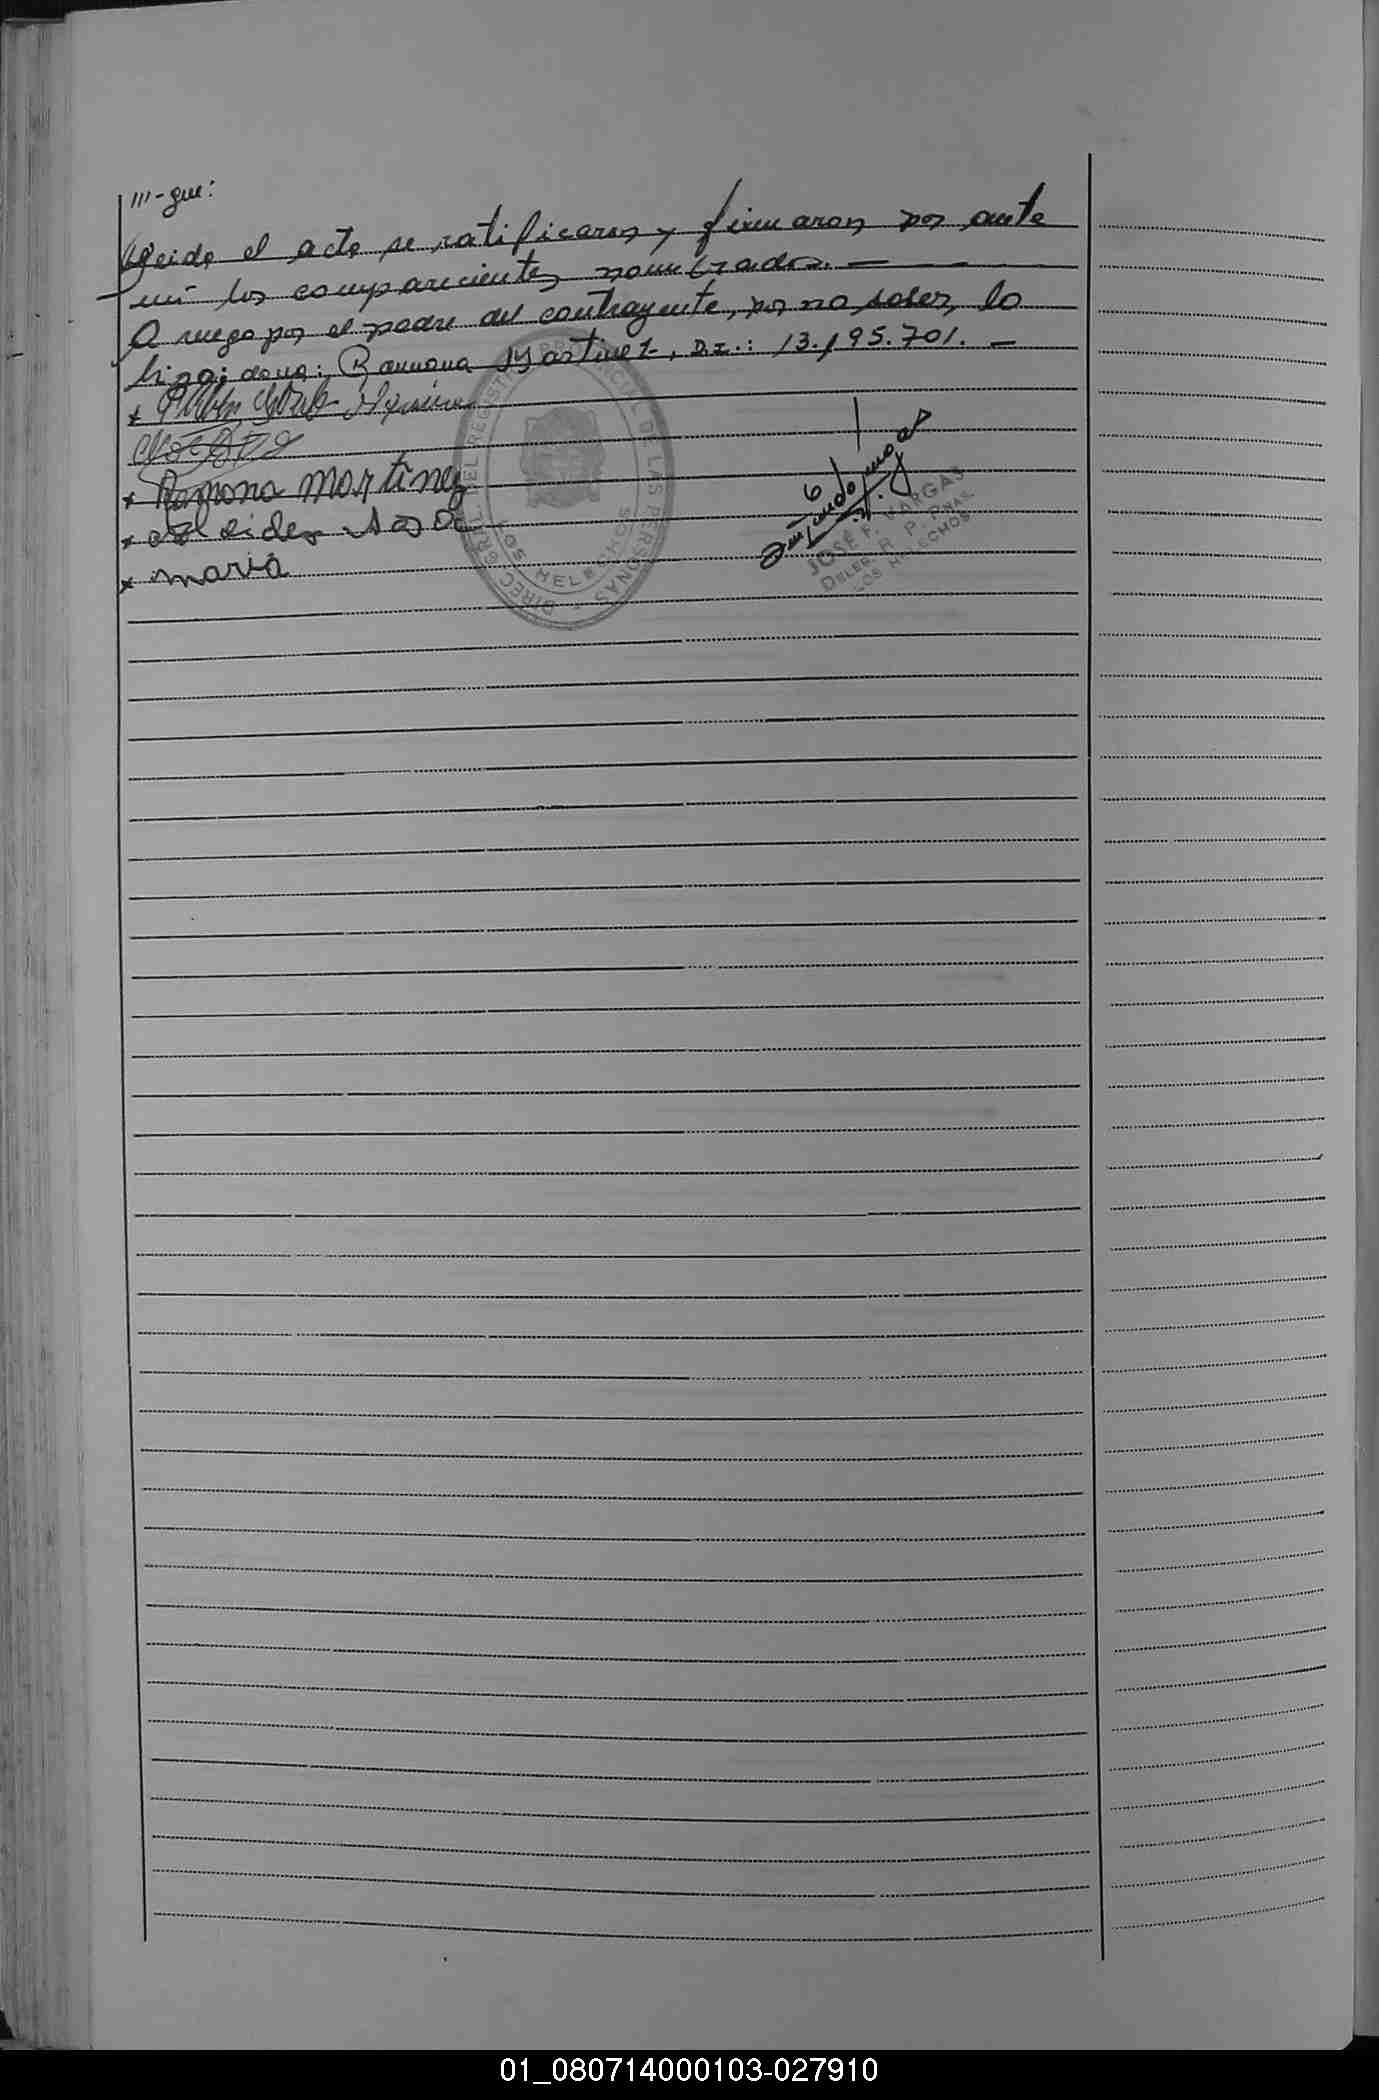 ///-gue:
Leido el acta se ratificaron y firmaron por ante
mi los comparecientes nombrados. —
A ruego por el padre del contrayente, por no saber, lo
hizo: dona: Ramona Martinez, D.I.: 13.195.701. —
Ramona Martinez
Alcides Sosa
Maria
DIREC. GRAL. DEL REGISTRO PROVINCIAL DE LAS PERSONAS
LOS HELECHOS
JOSÉ F. VARGAS
DELEG. R. P. PNAS.
LOS HELECHOS
01_080714000103-027910